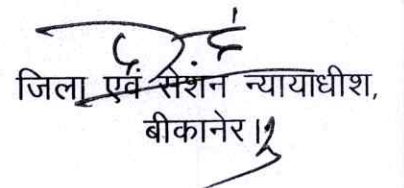 जिला एवं सेशन न्यायाधीश,
बीकानेर।